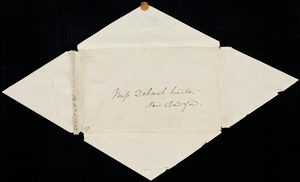 Miss Deborah Weston
New Bedford.